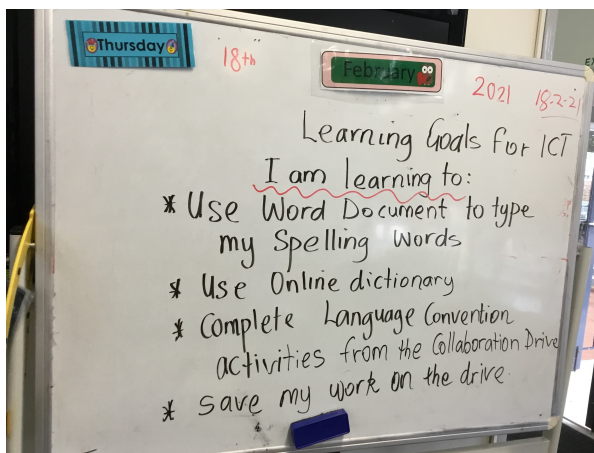 Thursday 18th February 2021 18-2-21
Learning Goals for ICT
I am learning to:
* Use Word Document to type
my Spelling Words
* Use Online dictionary
* Complete Language Convention
activities from the Collaboration Drive
* Save my work on the drive.